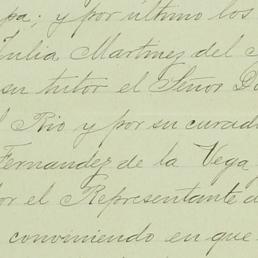 pa; y por último los
Julia Martinez del
su tutor el Señor D
Rio y por su curad
Fernandez de la Vega
or el Representante d
conviniendo en que